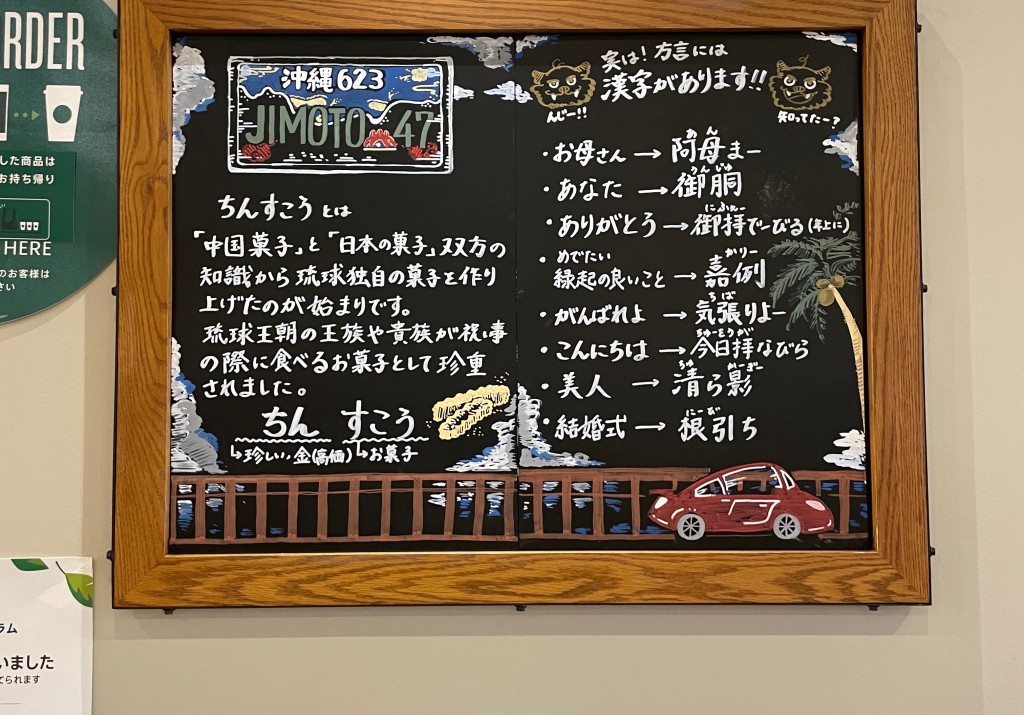 RDER
した商品は
お持ち帰り
HERE
のお客様は
さい
沖縄623
JIMOTO 47
ちんすこうとは
「中国菓子」と「日本の菓子」双方の
知識から琉球独自の菓子を作り
上げたのが始まりです。
琉球王朝の王族や貴族が祝い事
の際に食べるお菓子として珍重
されました。
ちん すこう
↳珍しい,金(高価) ↳お菓子
実は!方言には
漢字があります!!
んじー!!
知ってた〜?
・お母さん→阿母まー
あん
・あなた→御胴
うんじゅ
・ありがとう→御拝でーびる(年上に)
にふぇー
・縁起の良いこと→嘉例
めでたい
かりー
・がんばれよ→気張りよー
ちば
・こんにちは→今日拝なびら
ちゅーをぅが
・美人→清ら影
ちゅ かーぎー
・結婚式→根引ち
にーび
ラム
いました
てられます